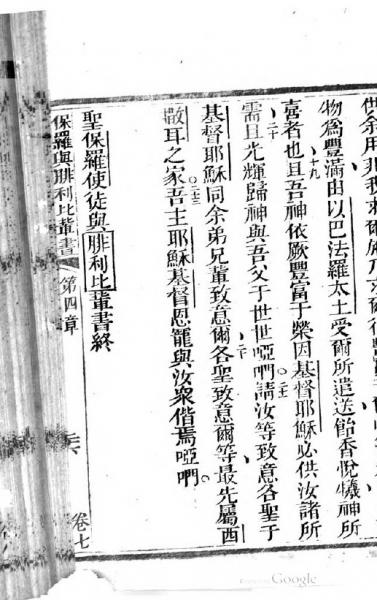 供余用非我求爾施乃求爾
物為豐滿由以巴法羅太士受爾所遣送飴香悅犧神所
喜者也十九且吾神依厥豐富于榮因基督耶穌必供汝諸所
需二十且光輝歸神與吾父于世世啞們○二一請汝等致意各聖于
基督耶穌同余弟兄輩致意爾各聖致意爾等最先屬西
散耳之家○二三吾主耶穌基督恩寵與汝眾偕焉啞們
聖保羅使徒與腓利比輩書終
保羅與腓利比輩書 第四章 卷七
Google